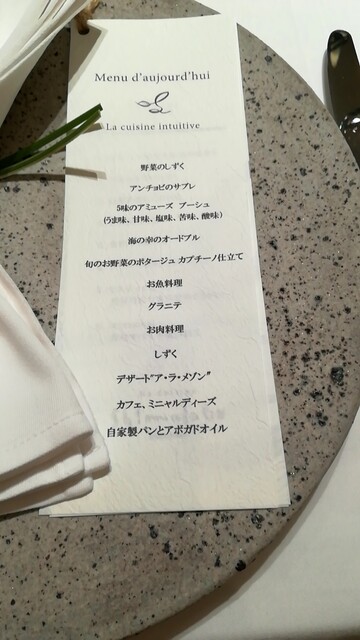 Menu d'aujourd'hui
La cuisine intuitive
野菜のしずく
アンチョビのサブレ
5味のアミューズ ブーシュ
(うま味、甘味、塩味、苦味、酸味)
海の幸のオードブル
旬のお野菜のポタージュ カプチーノ仕立て
お魚料理
グラニテ
お肉料理
しずく
デザート"ア・ラ・メゾン"
カフェ、ミニャルディーズ
自家製パンとアボガドオイル